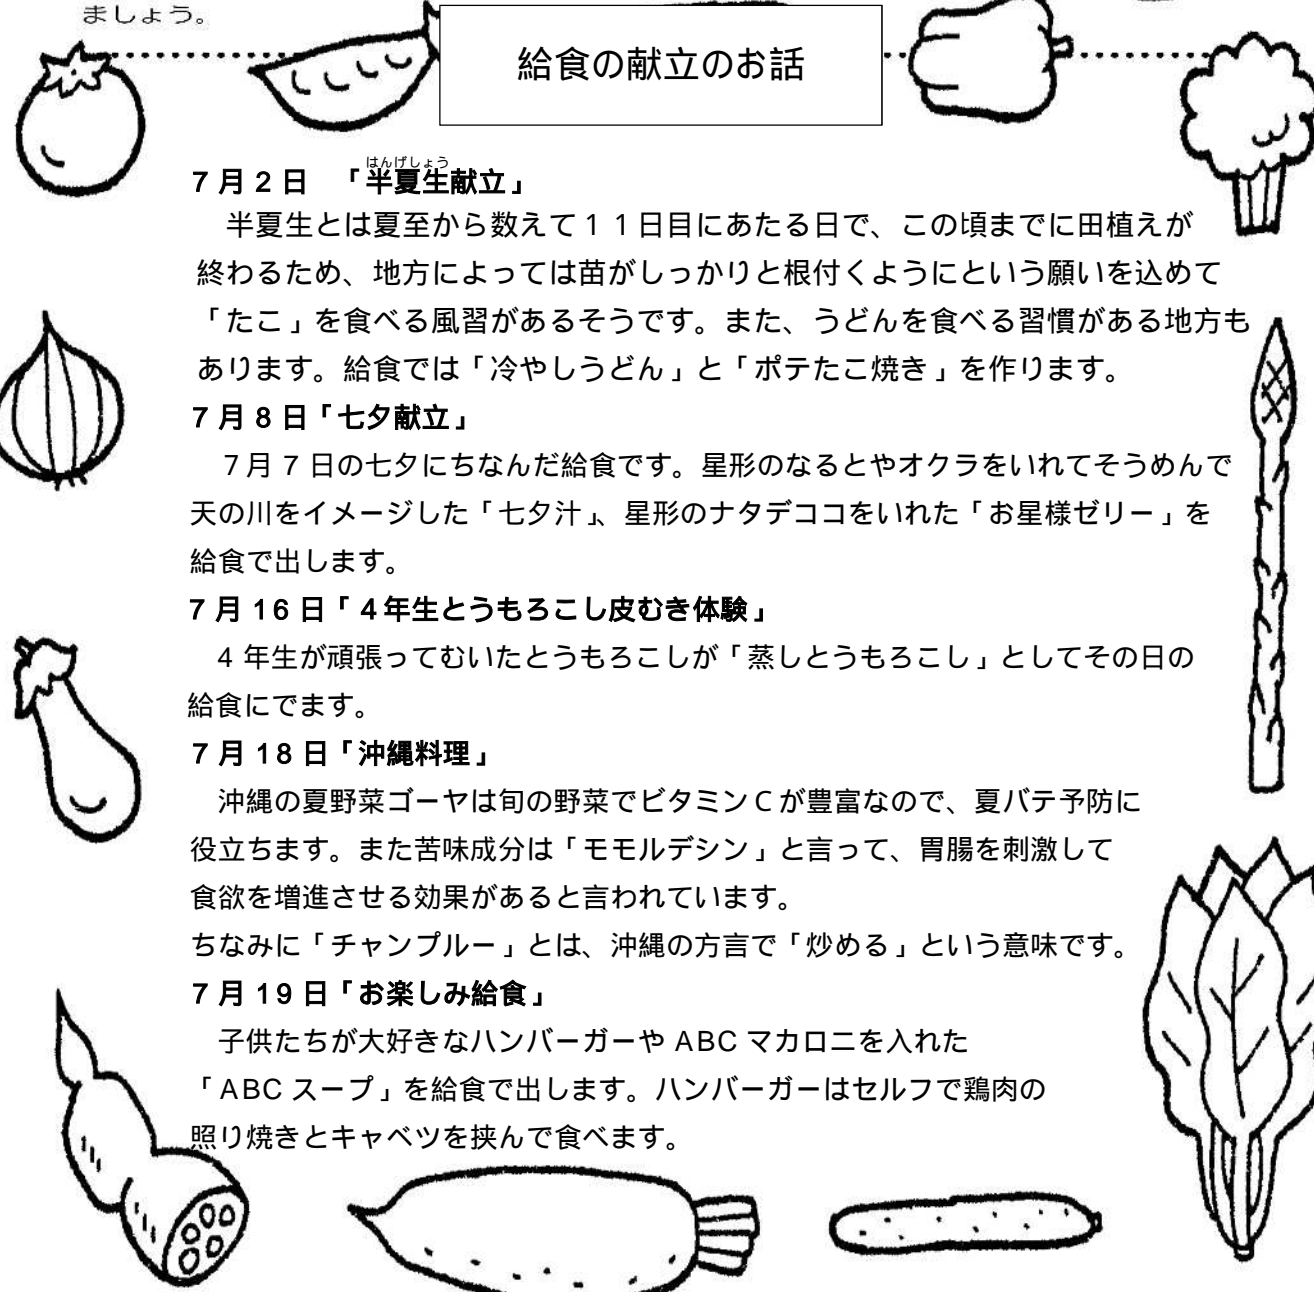 ましょう。
給食の献立のお話
はんげしょう
７月２日　「半夏生献立」
半夏生とは夏至から数えて１１日目にあたる日で、この頃までに田植えが
終わるため、地方によっては苗がしっかりと根付くようにという願いを込めて
「たこ」を食べる風習があるそうです。また、うどんを食べる習慣がある地方も
あります。給食では「冷やしうどん」と「ポテたこ焼き」を作ります。
７月８日「七夕献立」
７月７日の七夕にちなんだ給食です。星形のなるとやオクラをいれてそうめんで
天の川をイメージした「七夕汁」、星形のナタデココをいれた「お星様ゼリー」を
給食で出します。
７月16日「４年生とうもろこし皮むき体験」
４年生が頑張ってむいたとうもろこしが「蒸しとうもろこし」としてその日の
給食にでます。
７月18日「沖縄料理」
沖縄の夏野菜ゴーヤは旬の野菜でビタミンCが豊富なので、夏バテ予防に
役立ちます。また苦味成分は「モモルデシン」と言って、胃腸を刺激して
食欲を増進させる効果があると言われています。
ちなみに「チャンプルー」とは、沖縄の方言で「炒める」という意味です。
７月19日「お楽しみ給食」
子供たちが大好きなハンバーガーやABCマカロニを入れた
「ABCスープ」を給食で出します。ハンバーガーはセルフで鶏肉の
照り焼きとキャベツを挟んで食べます。